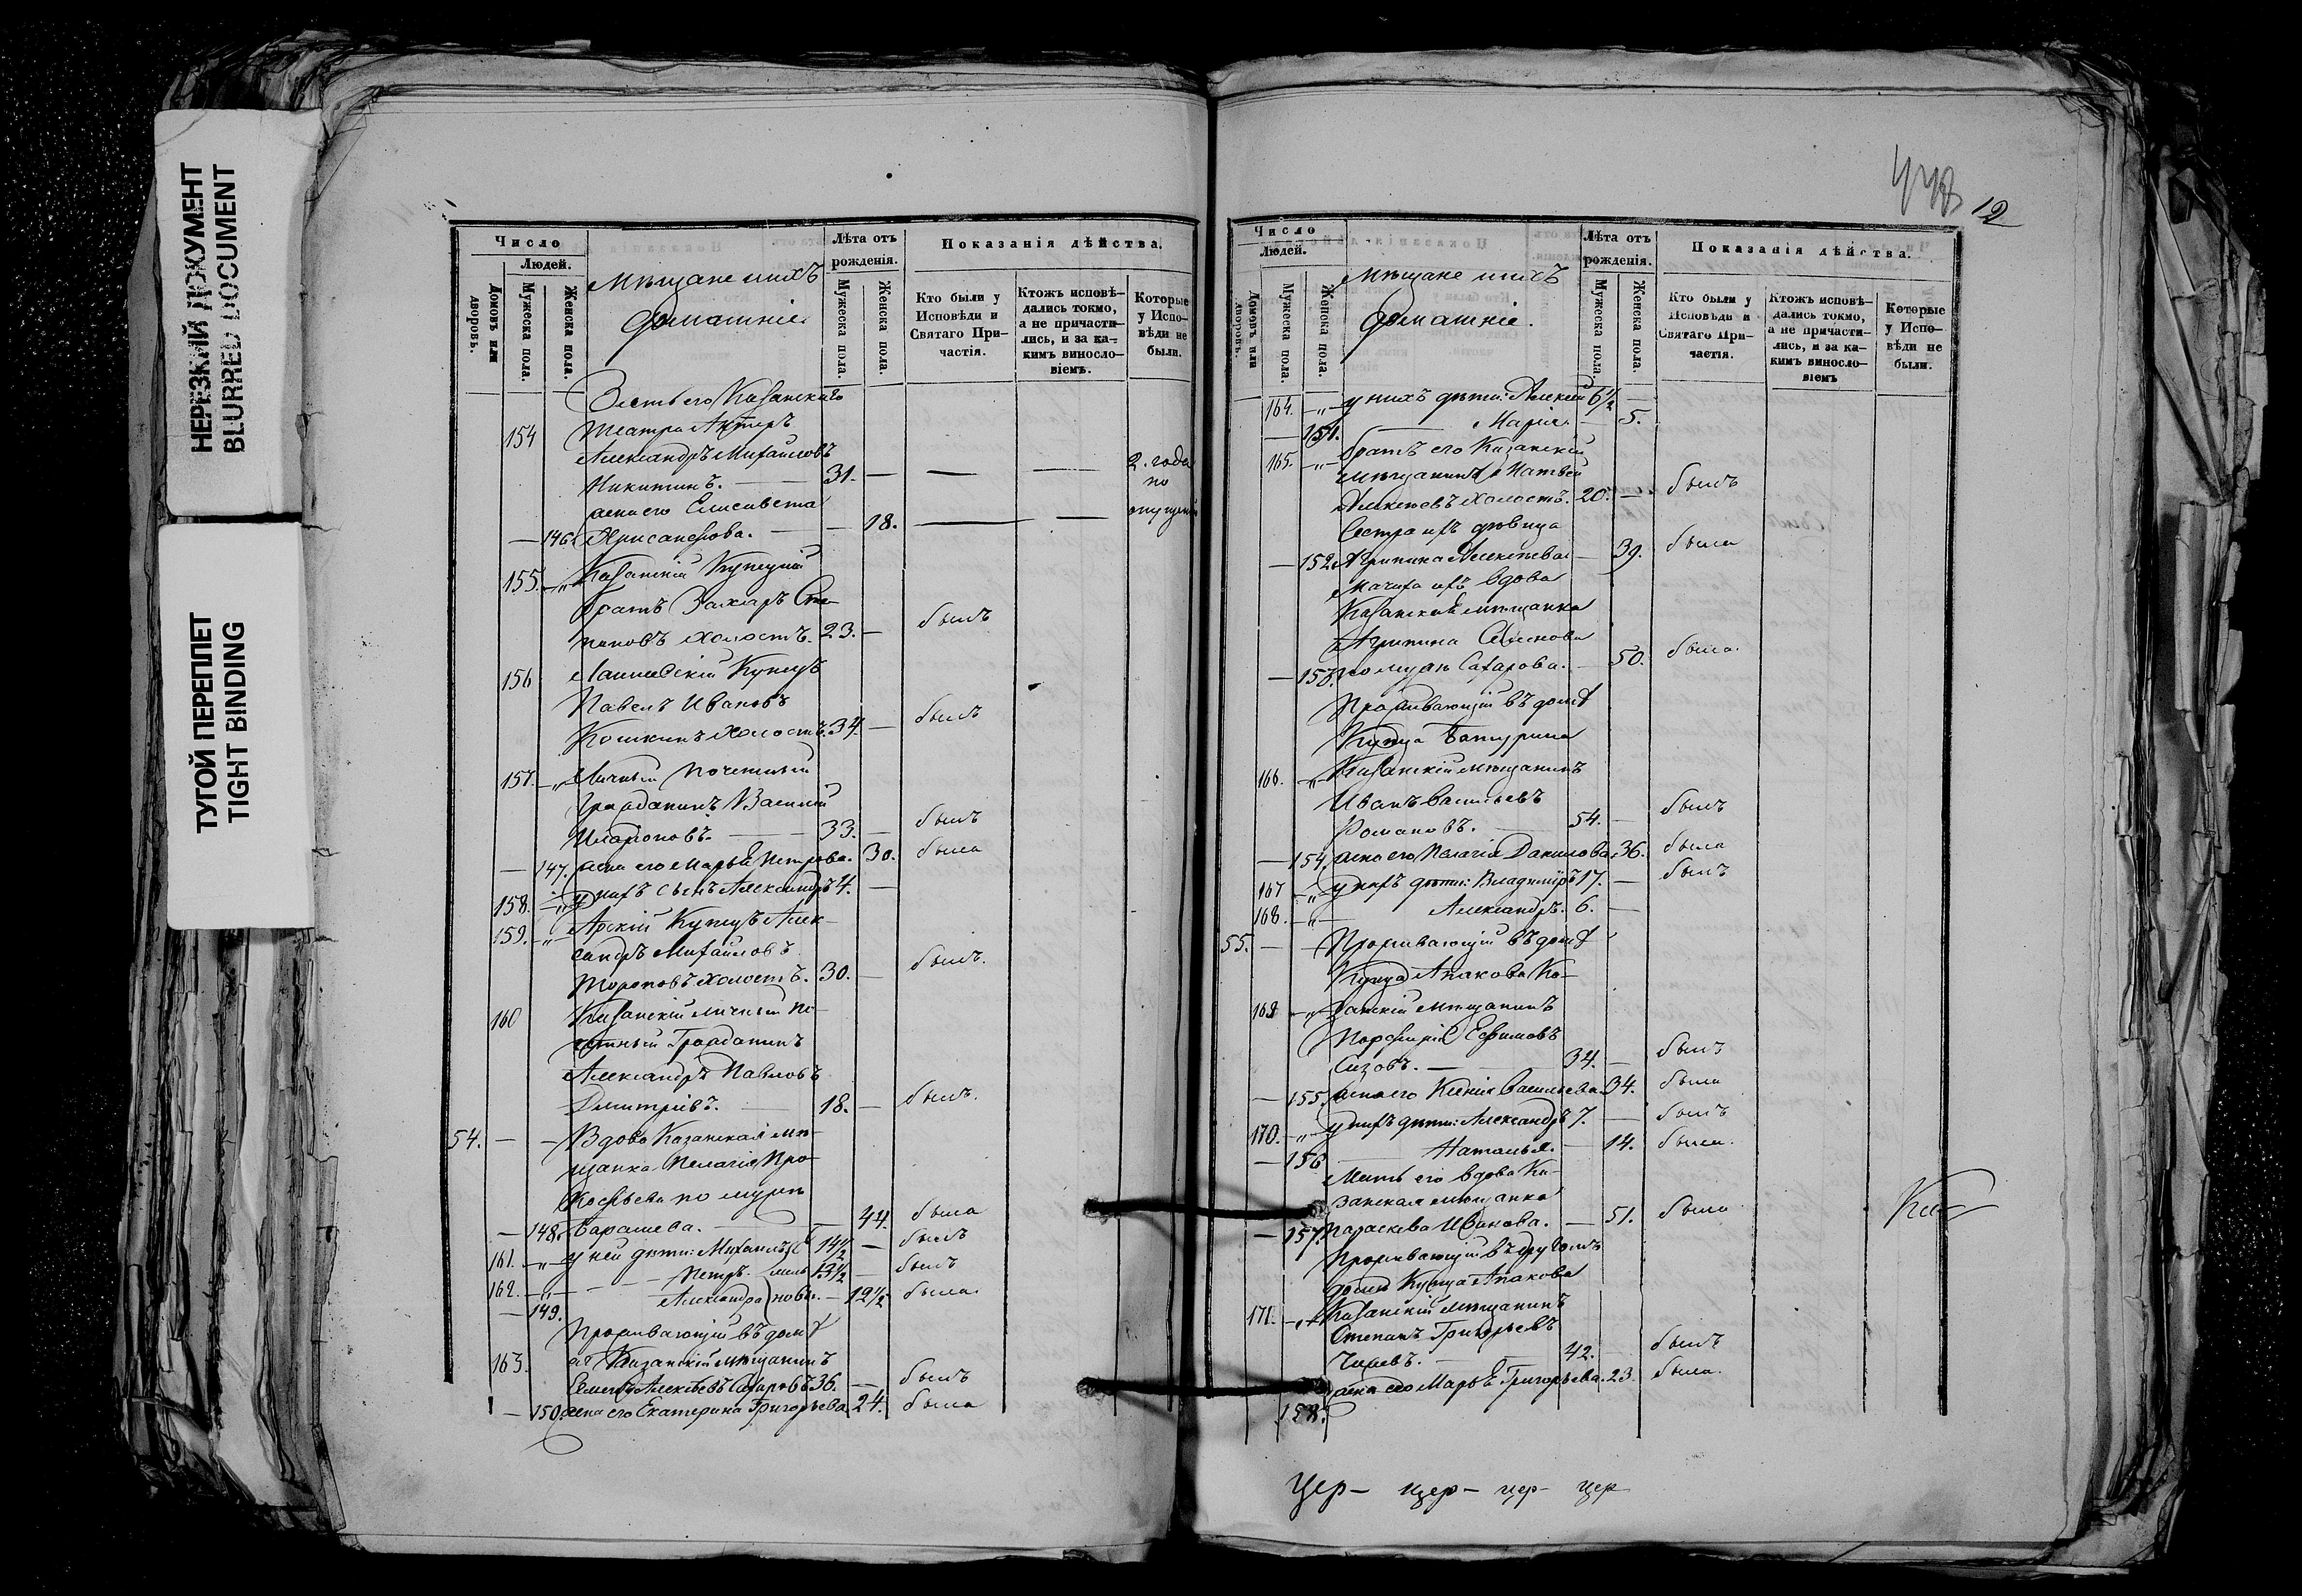 НЕРЕЗКИЙ ДОКУМЕНТ
BLURRED DOCUMENT
ТУГОЙ ПЕРЕПЛЕТ
TIGHT BINDING
Число
Людей.
Домовъ или дворовъ.
Мужеска пола.
Женска пола.
Мѣщане и ихъ
домашніе.
Лѣта отъ рожденія.
Мужеска пола.
Женска пола.
Показанія дѣйства.
Кто были у Исповѣди и Святаго Причастія.
Ктожъ исповѣдались токмо, а не причастились, и за какимъ винословіемъ.
Которые у Исповѣди не были.
Зять его Казанскаго
154 театра Актеръ
Александръ Михайловъ
Никитинъ. — 31. — — — 2. года
по
жена его Елисавета
опущенію
— 146. Хрисанфова. — — 18. — —
155. —„— Казанскій Купецкій
братъ Захаръ Сте-
пановъ холостъ. 23. — былъ
156 Лаишевскій Купецъ
Павелъ Ивановъ
Кошкинъ холостъ. 34. — былъ
157. —„— Личный почетный
Гражданинъ Василій
Иларіоновъ. — 33. — былъ
— 147. жена его Марья Петрова. 30. была
158. —„— у нихъ сынъ Александръ 4. —
159. —„— Арскій Купецъ Алек-
сандръ Михайловъ
Тороповъ холостъ. 30. — былъ.
160 Казанскій личный по-
четный Гражданинъ
Александръ Павловъ
Дмитріевъ. — 18. — былъ.
54. — — Вдова Казанская мѣ-
щанка Пелагія Про-
кофьева по мужѣ
— 148. Барашева. — — 44. была
161. —„— у ней дѣти: Михаилъ 14½ — былъ
162. —„— — Петръ. 13½ — былъ
— 149. Александра — 12½ была.
Проживающій въ домѣ
163. ея Казанскій мѣщанинъ
Семенъ Алексѣевъ Сахаровъ 36. — былъ
— 150. жена его Екатерина Григорьева. 24. была
12
Число
Людей.
Домовъ или дворовъ.
Мужеска пола.
Женска пола.
Мѣщане и ихъ
домашніе.
Лѣта отъ рожденія.
Мужеска пола.
Женска пола.
Показанія дѣйства.
Кто были у Исповѣди и Святаго Причастія.
Ктожъ исповѣдались токмо, а не причастились, и за какимъ винословіемъ
Которые у Исповѣди не были.
164. —„— у нихъ дѣти: Алексѣй 6½ —
— 151. — Марія — 5.
165. —„— братъ его Казанскій
мѣщанинъ Матвей
Алексѣевъ холостъ. 20. — былъ
Сестра ихъ дѣвица
— 152. Агрипина Алексѣева — 39. была
мачиха ихъ вдова
Казанская мѣщанка
Агрипина Семенова
— 153. по мужѣ Сахарова. — 50. была.
Проживающій въ домѣ
Купца Батурина
166. —„— Казанскій мѣщанинъ
Иванъ Васильевъ
Романовъ. 54. — былъ
— 154. жена его Пелагія Данилова. 36. была
167 —„— у нихъ дѣти: Владиміръ 17. — былъ
168. —„— Александръ. 6. —
55. — — Проживающій въ домѣ
Купца Апакова Ка-
169 —„— занскій мѣщанинъ
Порфирій Ефимовъ
Сизовъ. — 34. — былъ
— 155. жена его Ксенія Васильева. 34. была
170. —„— у нихъ дѣти: Александръ 7. — былъ
— 156 Наталья. — 14. была.
Мать его вдова Ка-
занская мѣщанка
— 157. Параскева Иванова. — 51. была
Проживающій въ другомъ
домѣ Купца Апакова
171. —„— Казанскій мѣщанинъ
Степанъ Григорьевъ
42. — былъ
жена его Марья Григорьева. 23. была.
158.
Цер- цер- цер- цер